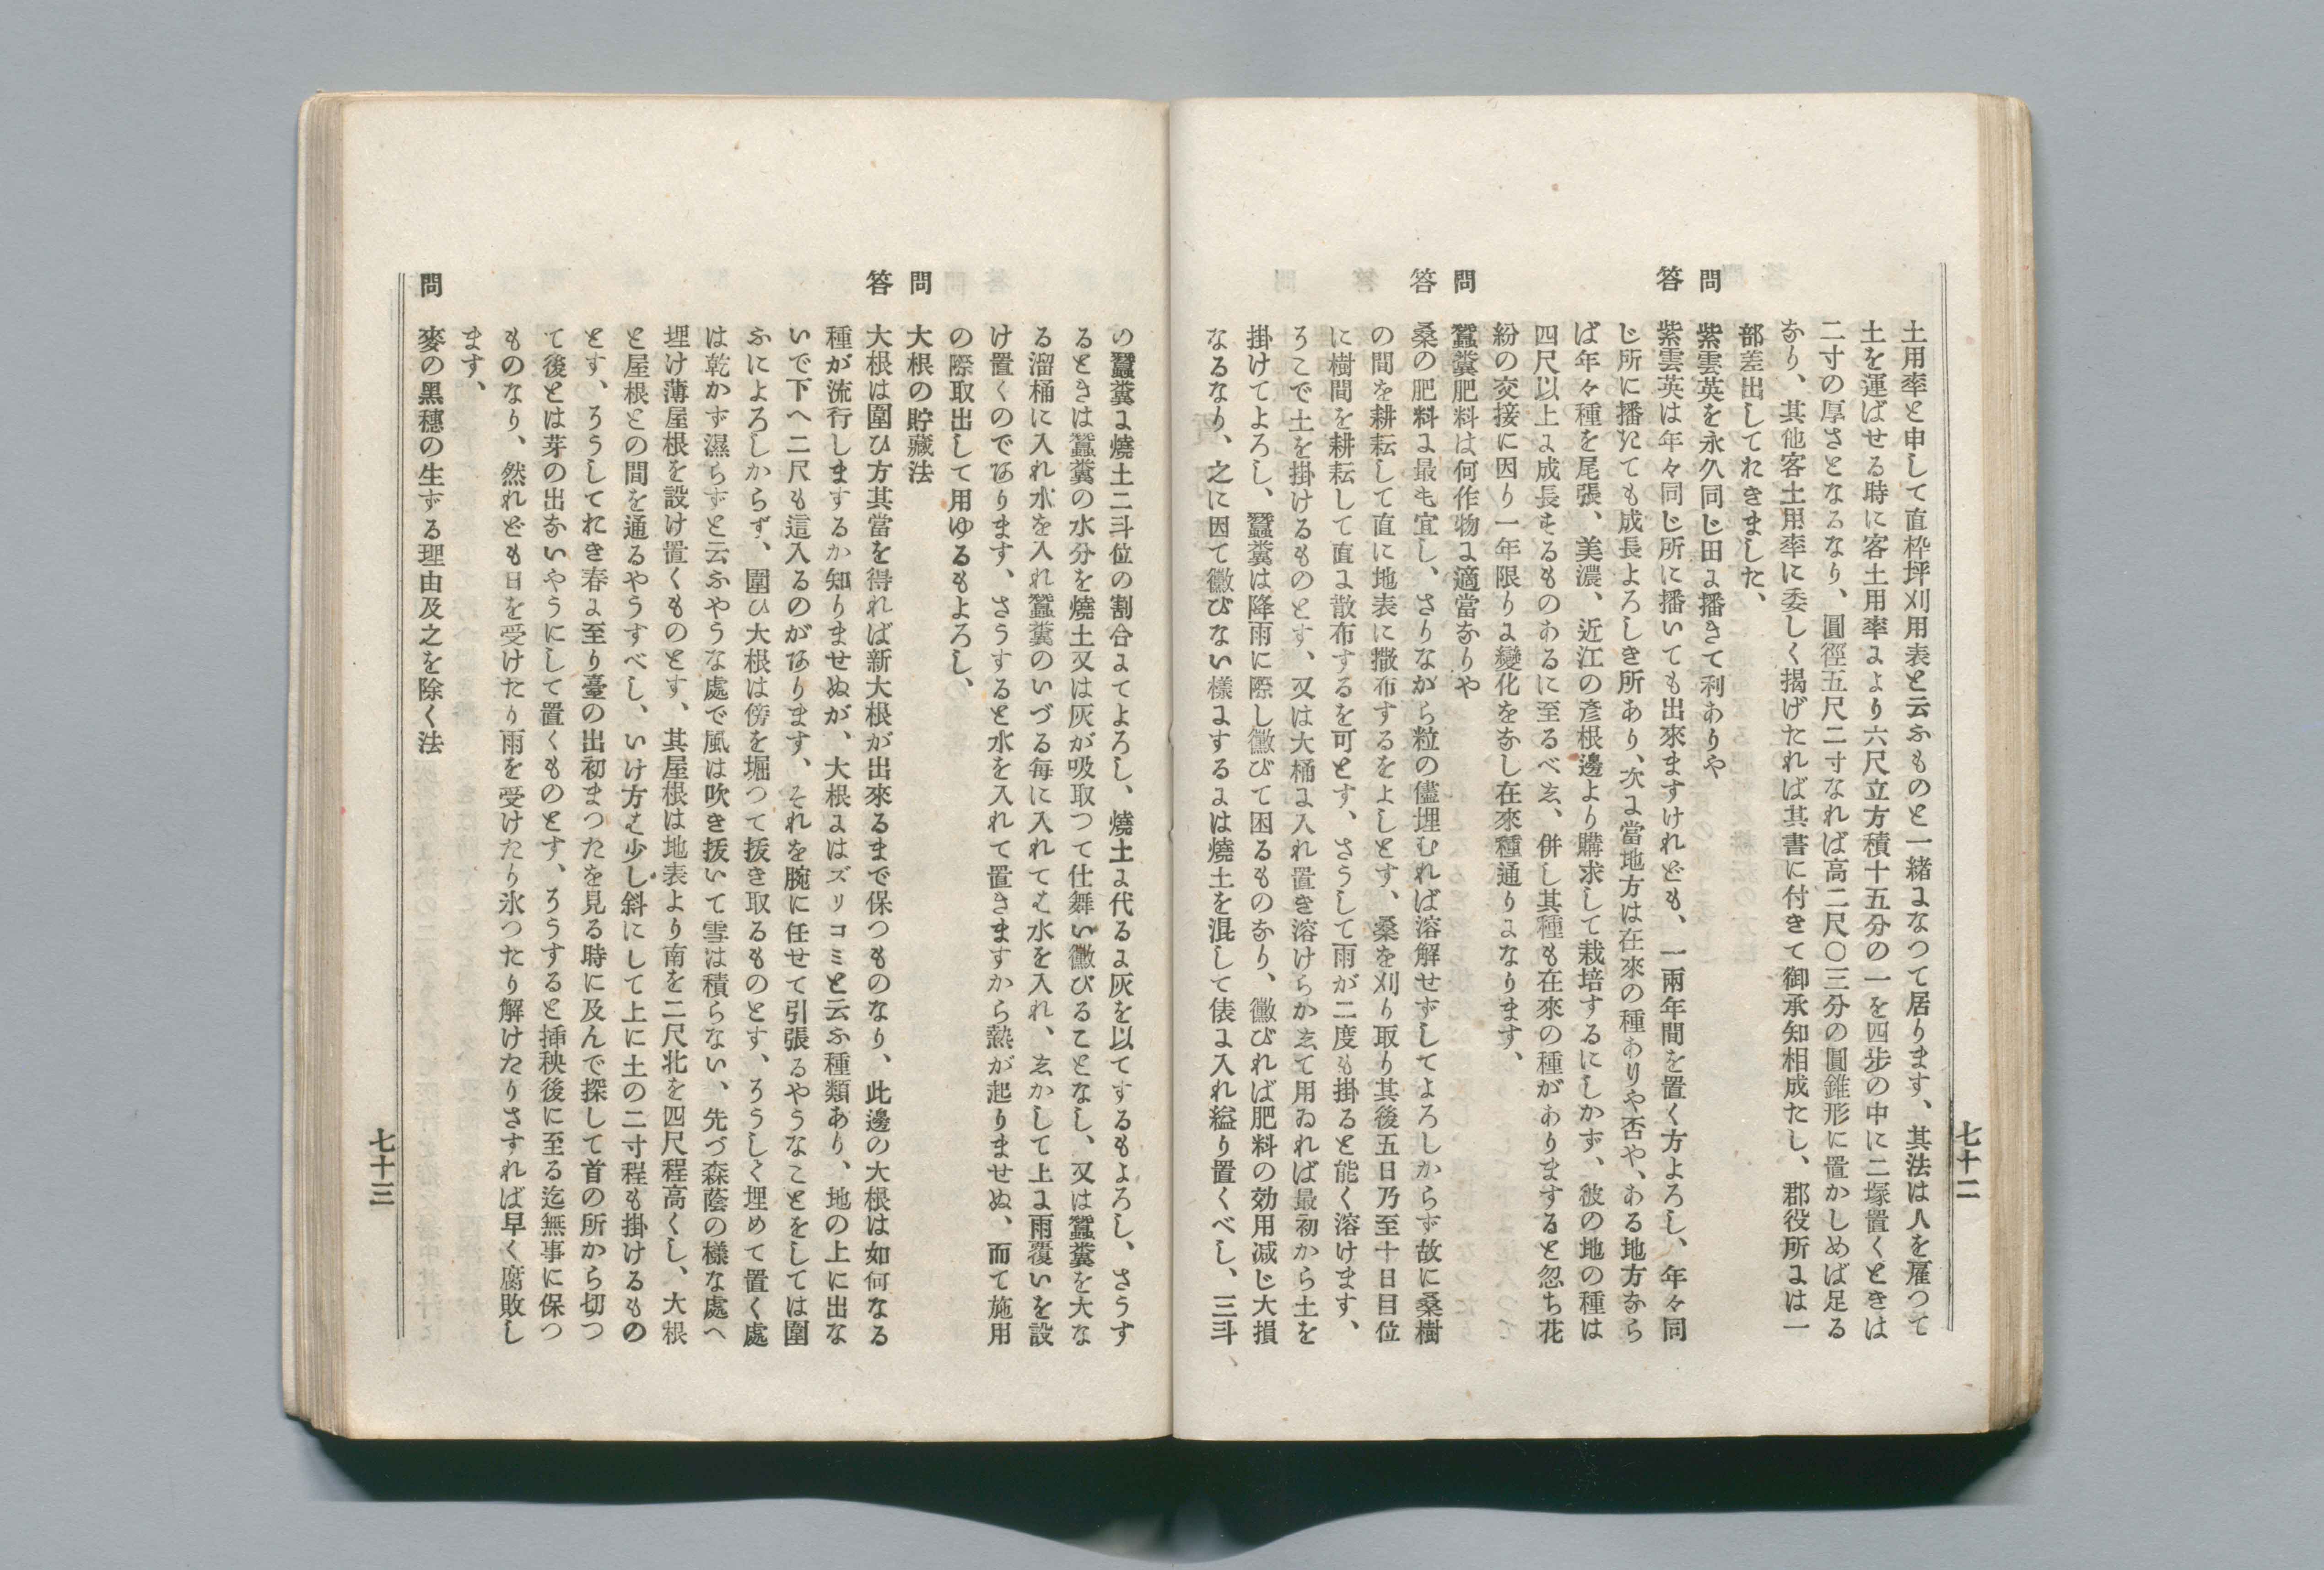 七十二
土用率と申して直枠坪刈用表と云ふものと一緒になつて居ります、其法は人を雇つて
土を運ばせる時に客土用率により六尺立方積十五分の一を四歩の中に二塚置くときは
二寸の厚さとなるなり、圓徑五尺二寸なれば高二尺〇三分の圓錐形に置かしめば足る
なり、其他客土用率に委しく揭げたれば其書に付きて御承知相成たし、郡役所には一
部差出しておきました、
問　紫雲英を永久同じ田に播きて利ありや
答　紫雲英は年々同じ所に播いても出來ますけれども、一兩年間を置く方よろし、年々同
じ所に播だても成長よろしき所あり、次に當地方は在來の種ありや否や、ある地方なら
ば年々種を尾張、美濃、近江の彥根邊より購求して栽培するにしかず、彼の地の種は
四尺以上に成長せるものあるに至るべし、併し其種も在來の種がありますると忽ち花
紛の交接に因り一年限りに變化をなし在來種通りになります、
問　蠶糞肥料は何作物に適當なりや
答　桑の肥料に最も宜し、さりながら粒の儘埋むれば溶解せずしてよろしからず故に桑樹
の間を耕耘して直に地表に撒布するをよしとす、桑を刈り取り其後五日乃至十日目位
に樹間を耕耘して直に散布するを可とす、さうして雨が二度も掛ると能く溶けます、
そこで土を掛けるものとす、又は大桶に入れ置き溶けらかして用ゐれば最初から土を
掛けてよろし、蠶糞は降雨に際し黴びて困るものなり、黴びれば肥料の効用減じ大損
なるなり、之に因て黴びない樣にするには燒土を混して俵に入れ縊り置くべし、三斗
の蠶糞に燒土二斗位の割合にてよろし、燒土に代るに灰を以てするもよろし、さうす
るときは蠶糞の水分を燒土又は灰が吸取つて仕舞い黴びることなし、又は蠶糞を大な
る溜桶に入れ水を入れ蠶糞のいづる每に入れては水を入れ、しかして上に雨覆いを設
け置くのであります、さうすると水を入れて置きますから熱が起りませぬ、而て施用
の際取出して用ゆるもよろし、
問　大根の貯藏法
答　大根は圍ひ方其當を得れば新大根が出來るまで保つものなり、此邊の大根は如何なる
種が流行しまするか知りませぬが、大根にはズリコミと云ふ種類あり、地の上に出な
いで下へ二尺も這入るのがあります、それを腕に任せて引張るやうなことをしては圍
ふによろしからず、圍ひ大根は傍を堀つて拔き取るものとす、そうしく埋めて置く處
は乾かず濕らずと云ふやうな處で風は吹き拔いて雪は積らない、先づ森蔭の樣な處へ
埋け薄屋根を設け置くものとす、其屋根は地表より南を二尺北を四尺程高くし、大根
と屋根との間を通るやうすべし、いけ方は少し斜にして上に土の二寸程も掛けるもの
とす、そうしておき春に至り臺の出初まつたを見る時に及んで探して首の所から切つ
て後とは芽の出ないやうにして置くものとす、そうすると挿秧後に至る迄無事に保つ
ものなり、然れども日を受けたり雨を受けたり氷つたり解けたりさすれば早く腐敗し
ます、
問　麥の黑穗の生ずる理由及之を除く法
七十三